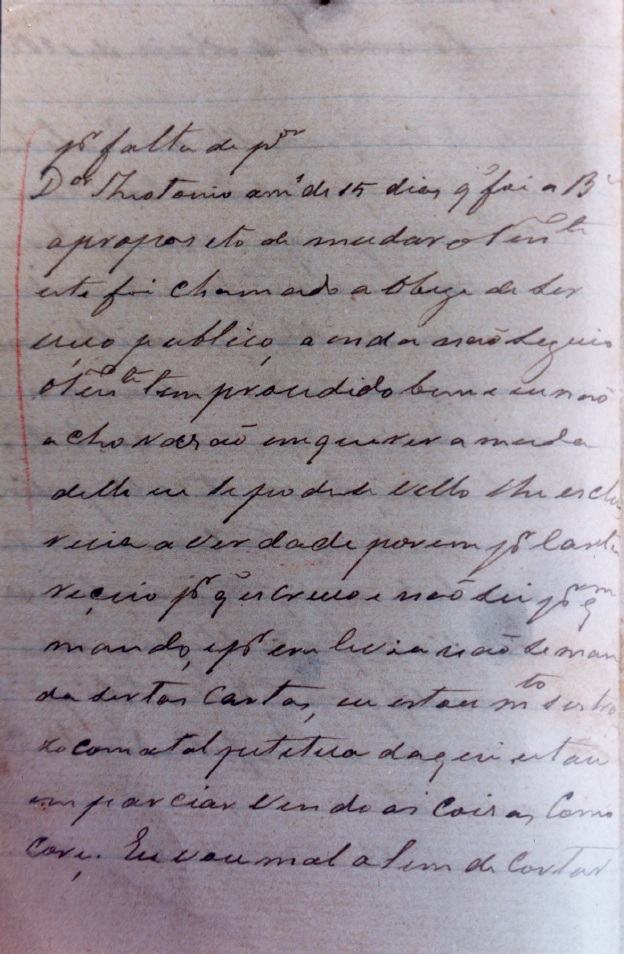 pr falta de por
Dor Theotonio a m.s de 15 dias q' foi a Ba
apropos eto de mudar o Tente
este foi chamado a bbeze de ser
viço publico, a onda não seguio
o Tente tem proudido bem e eu não
acho rasão em querer a muda
delle eu se podesse vello lhe escla
recia a verdade porem pr Carta
reçeio pr q' escrevo e não sei pr qm
mando, e pr em livia não se man
da sertas Cartas, eu estou mto
com a tal pulitica daqui estou
em parciar vendo as coisas Como
Core. Eu vou mal alem de Cortar